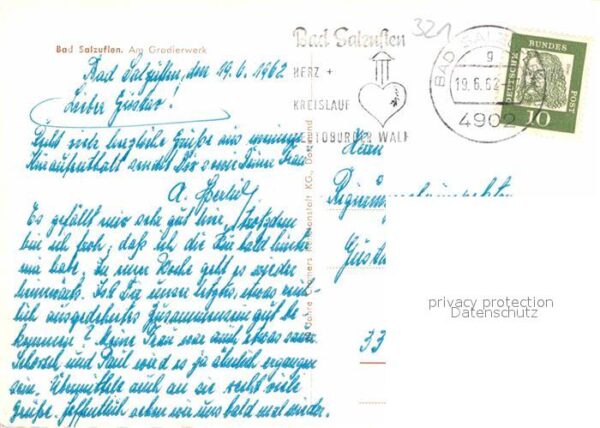 Bad Salzuflen. Am Gradierwerk
Bad Salzuflen, den 19.6.1962
Lieber Gustav!
Recht viele herzliche Grüße aus meinem
Kuraufenthalt sendet Dir u. Deiner Frau
A.
Es gefällt mir sehr gut hier, trotzdem
bin ich froh, daß ich die Kur bald hinter
mir habe. In einer Woche geht es wieder
heimwärts. Ist Dir unser letztes, etwas reich-
lich ausgedehntes Zusammensein gut be-
kommen? Meine Frau war auch etwas sauer.
Schorsch und Paul wird es ja ähnlich ergangen
sein. Übermittle auch an sie recht viele
Grüße. Hoffentlich sehen wir uns bald mal wieder.
321
Bad Salzuflen
HERZ +
KREISLAUF
TEUTOBURGER WALD
BAD SALZ
g
19.6.62
4902
DEUTSCHE BUNDES POST
10
Herrn
Gusta
33
privacy protection
Datenschutz